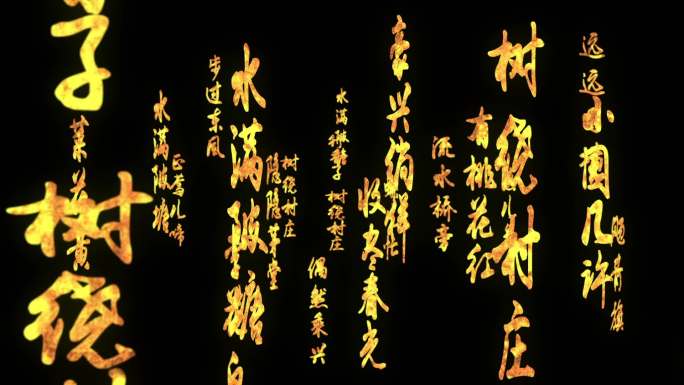 远远
小园几许
飏青旗
树绕村庄
有桃花红
流水桥
豪兴徜徉
收尽春光
水满
树绕村庄
偶然乘兴
树绕村庄
隐隐茅堂
水满陂糖
步过东风
正莺儿啼
水满陂塘
菜花黄
子
树绕